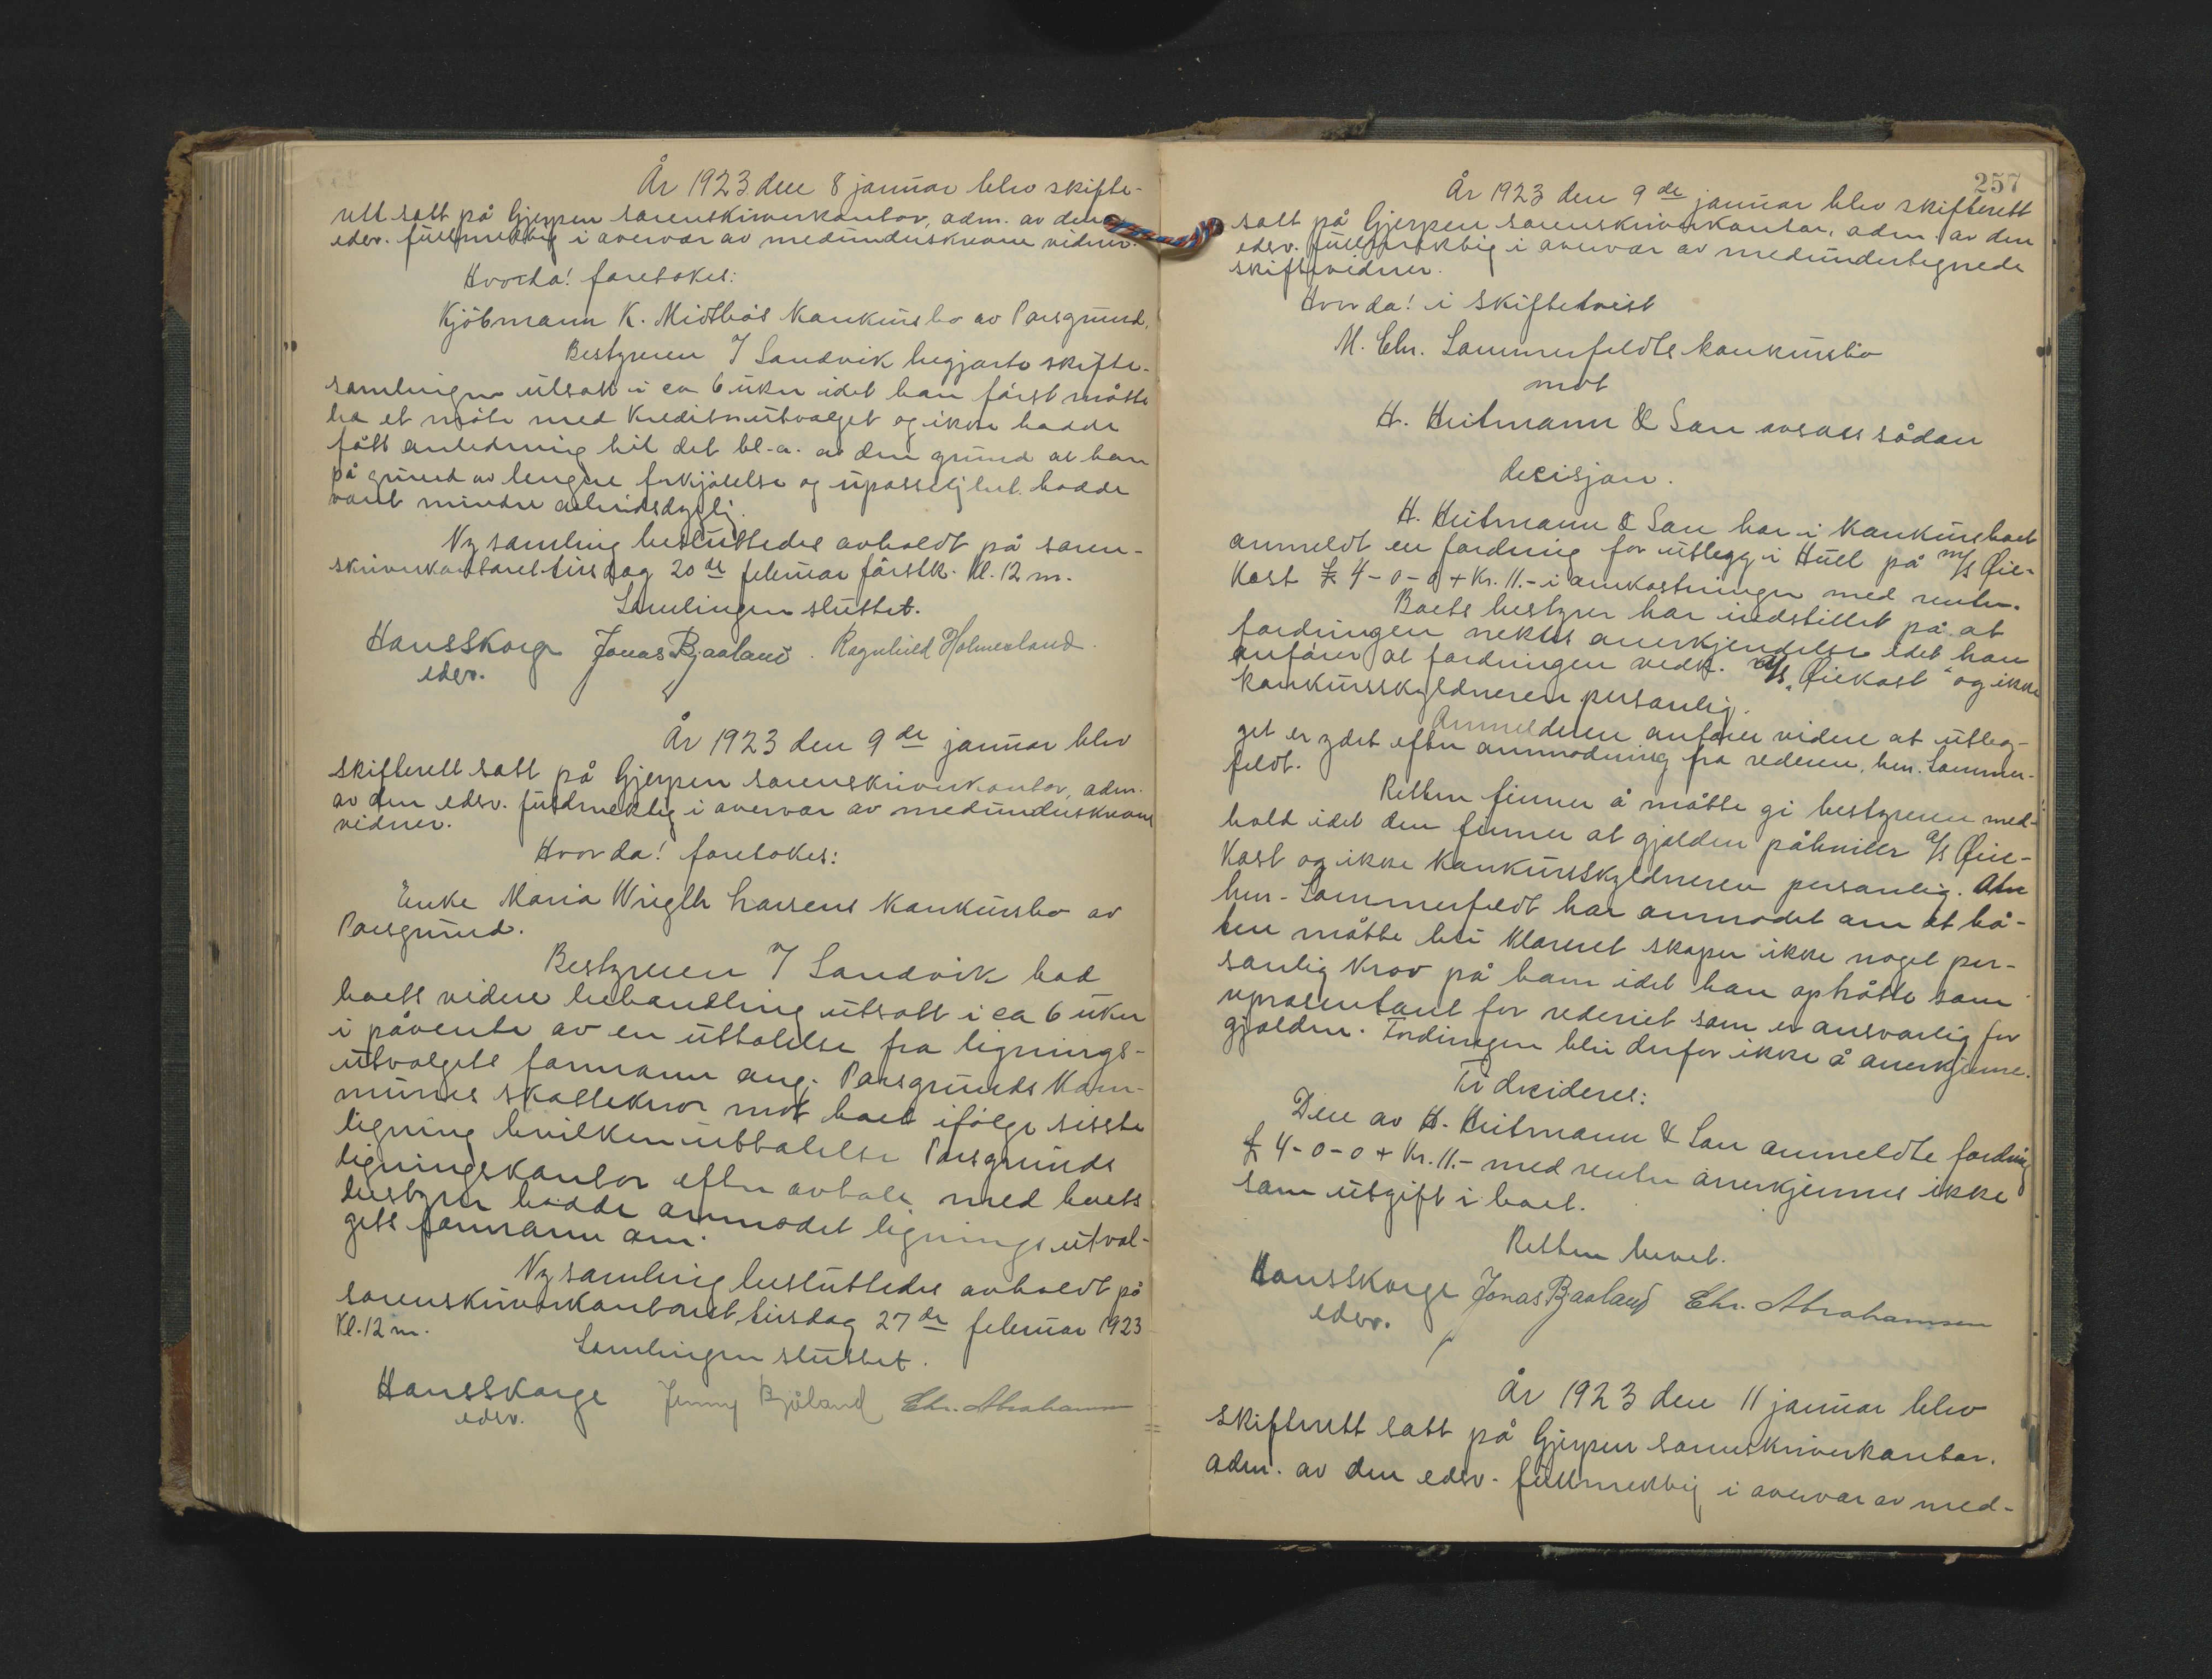 År 1923 den 8 januar blev skifte-
rett satt på Gjerpen sorenskriverkontor, adm. av den
edsv. fullmektig i overvær av medunderskrevne vidner.
Hvorda! foretokes:
Kjöbmann K. Midtbös konkursbo av Porsgrund.
Bestyreren J Sandvik begjærte skifte-
samlingen utsatt i ca 6 uker idet han först måtte
ha et möte med kreditorutvalget og ikke hadde
fått anledning til det bl.a. av den grund at han
på grund av lengere forkjölelse og upasselighet hadde
vært mindre arbeidsdyktig.
Ny samling besluttedes avholdt på soren-
skriverkontoret tirsdag 20de februar förstk. Kl. 12 m.
Samlingen sluttet.
Hans Skorge Jonas Bjaaland. Ragnhild Holmenland.
edsv.
År 1923 den 9de januar blev
skifterett satt på Gjerpen sorenskriverkontor, adm.
av den edsv. fuldmektig i overvær av medunderskrevne
vidner.
Hvor da! foretokes:
Enke Maria Wrigth Larsens konkursbo av
Porsgrund.
Bestyreren J Sandvik bad
boets videre behandling utsatt i ca 6 uker
i påvente av en uttalelse fra lignings-
utvalgets formann ang. Porsgrunds kom-
munes skattekrav mot boet ifölge sisste
ligning hvilken uttalelse Porsgrunds
ligningskontor efter avtale med boets
bestyrer hadde anmodet ligningsutval-
gets formann om.
Ny samling besluttedes avholdt på
sorenskriverkontoret, tirsdag 27de februar 1923
Kl. 12 m.
Samlingen sluttet.
Hans Skorge Jenny Bjåland Chr. Abrahamsen
edsv.
257
År 1923 den 9de januar blev skifterett
satt på Gjerpen sorenskriverkontor, adm. av den
edsv. fullmektig i overvær av medundertegnede
skiftevidner.
Hvor da! i skiftetvist
M. Chr. Sommerfeldts konkursbo
mot
H. Heitmann & Sön avsaes sådan
decisjon.
H. Heitmann & Sön har i konkursboet
anmeldt en fordring for utlegg i Hull på m/s Öie-
kast £ 4-0-0 + Kr. 11.- i omkostninger med renter.
Boets bestyrer har indstillet på at
fordringen nektes anerkjendelse idet han
anförer at fordringen vedk. A/s "Öiekast" og ikke
konkursskyldneren personlig.
Anmelderen anförer videre at utleg-
get er ydet efter anmodning fra rederen, hrr. Sommer-
feldt.
Retten finner å måtte gi bestyreren med-
hold idet den finner at gjælden påhviler A/s Öie-
kast og ikke konkursskyldneren personlig. Om
hrr. Sommerfeldt har anmodet om at bå-
ten måtte bli klareret skaper ikke noget per-
sonlig krav på ham idet han optrådte som
representant for rederiet som er ansvarlig for
gjælden. Fordringen blir derfor ikke å anerkjenne.
Ti decideres:
Den av H. Heitmann & Sön anmeldte fordring
£ 4-0-0 + Kr. 11.- med renter anerkjennes ikke
som utgift i boet.
Retten hevet.
Hans Skorge Jonas Bjaaland Chr. Abrahamsen
edsv.
År 1923 den 11 januar blev
skifterett satt på Gjerpen sorenskriverkontor.
adm. av den edsv. fullmektig i overvær av med-